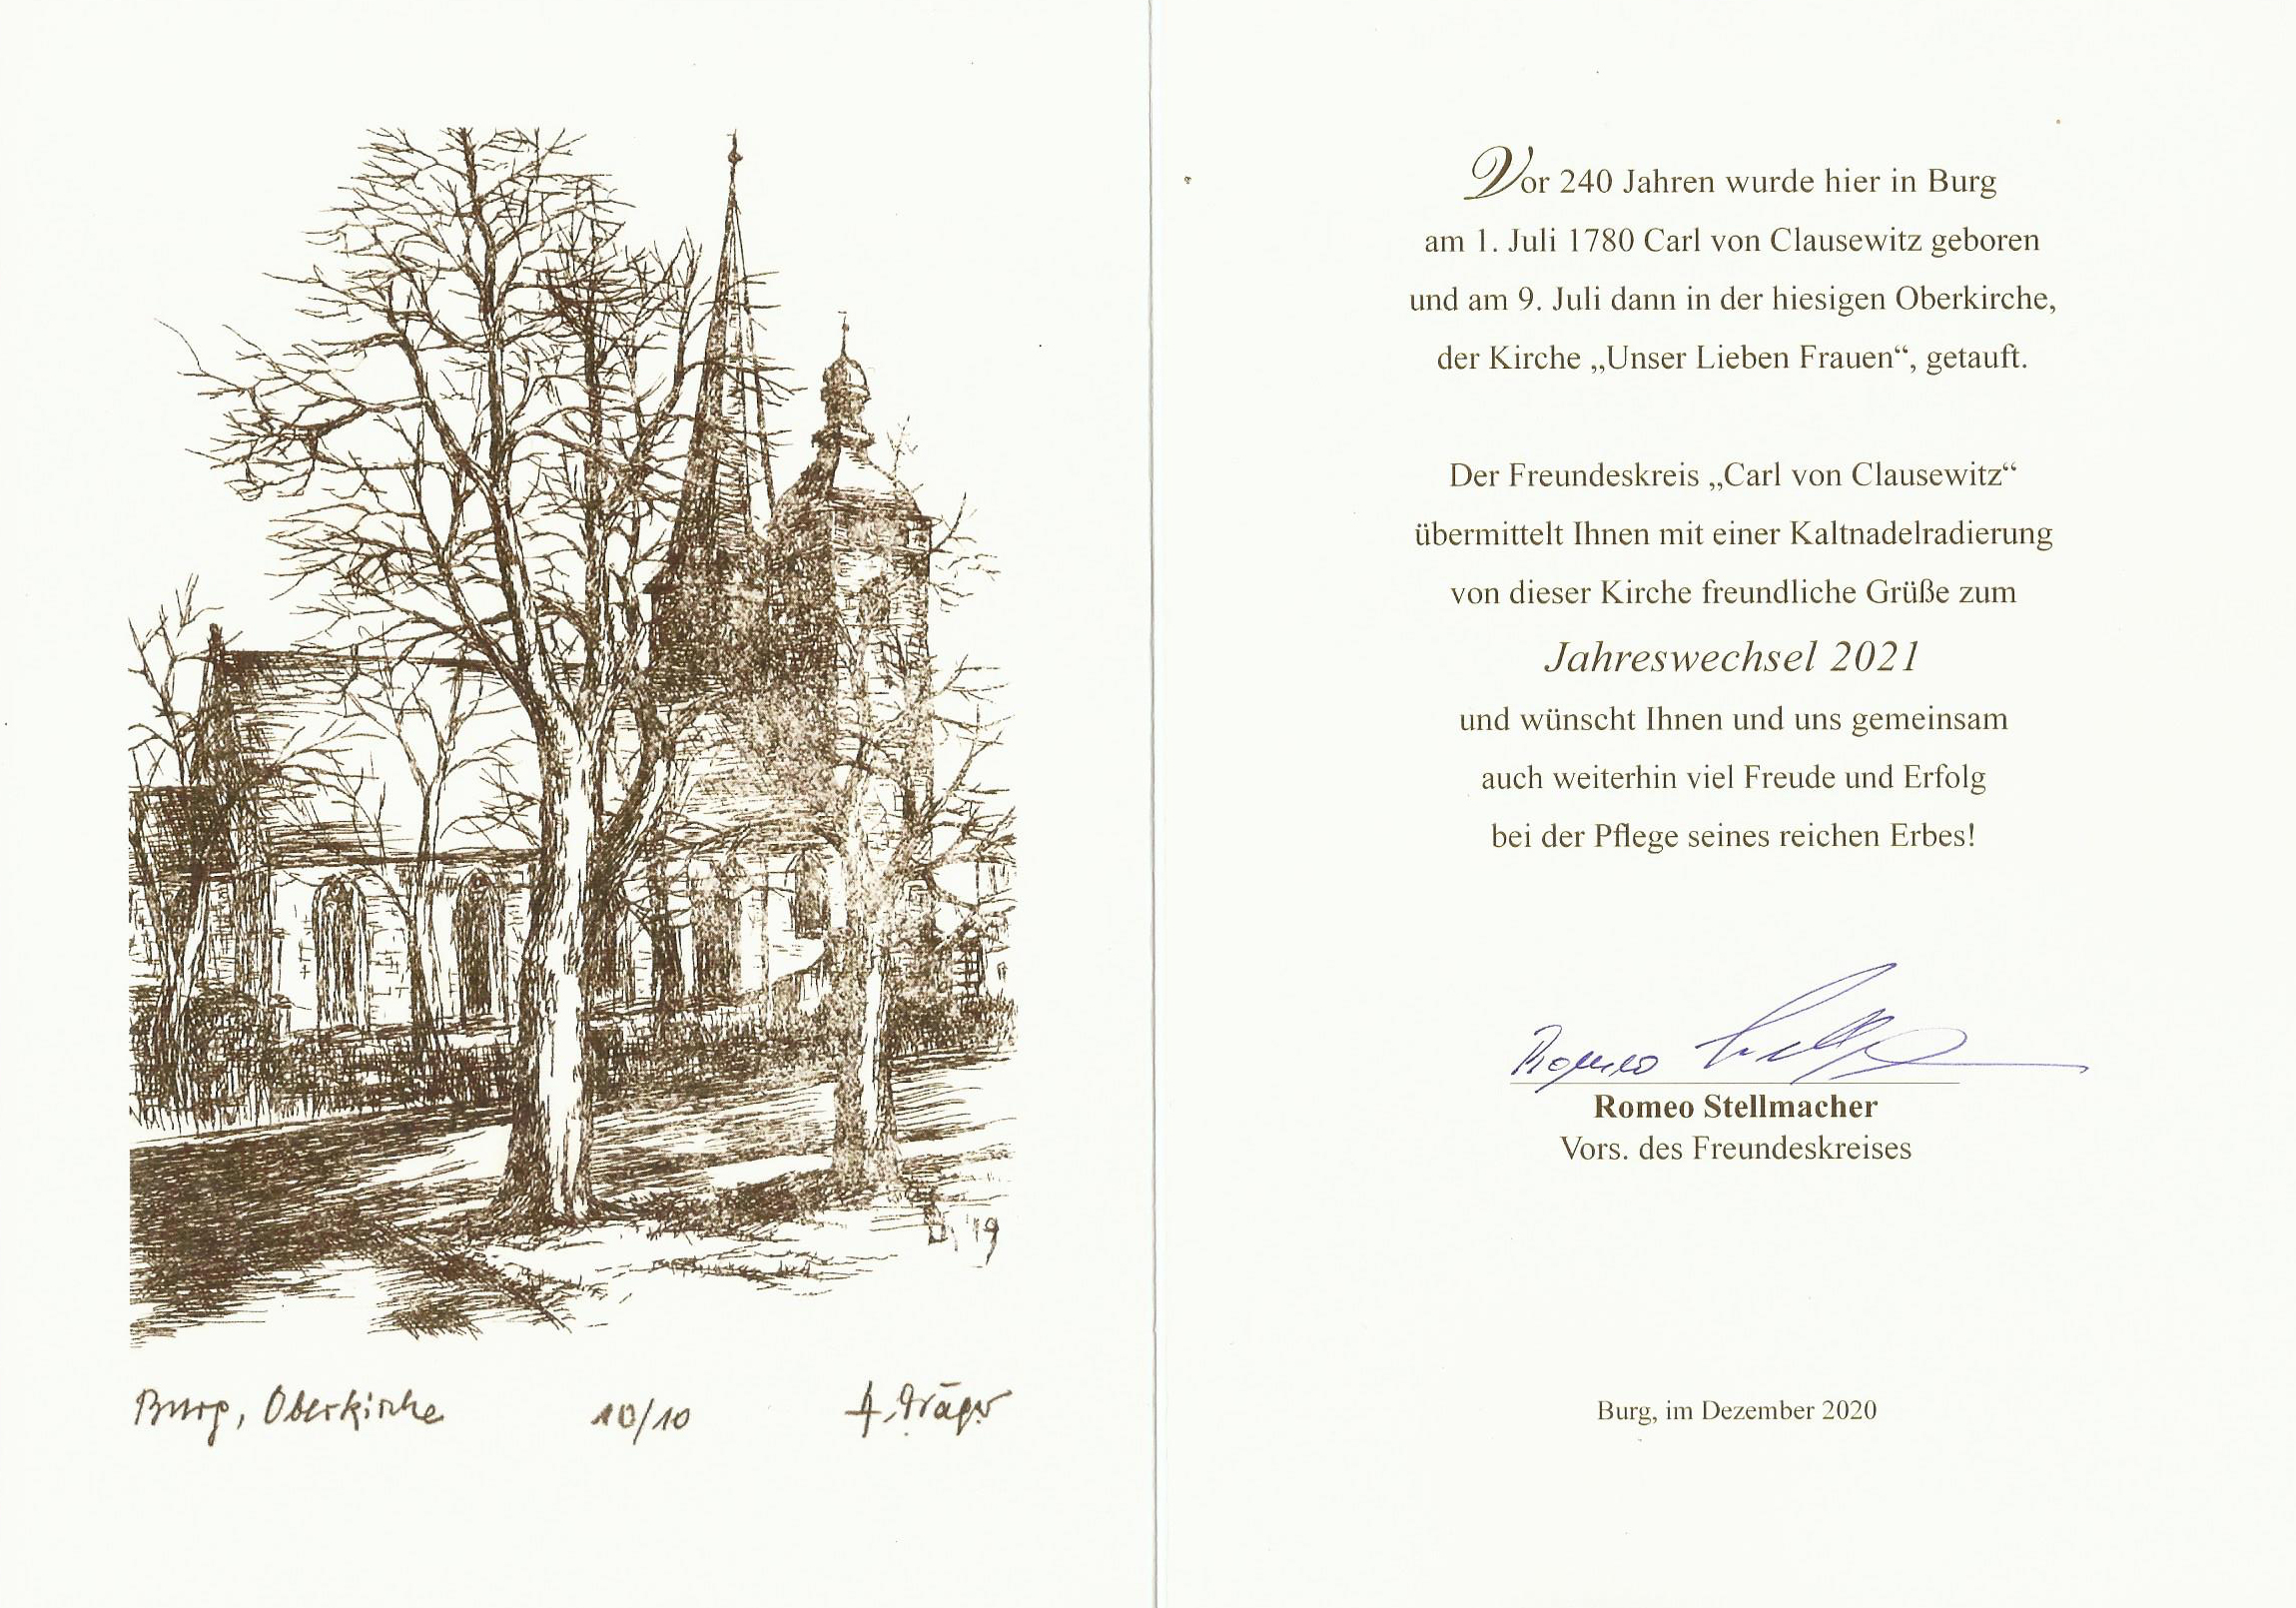 Burg, Oberkirche 10/10 A. Dräger
'19
Vor 240 Jahren wurde hier in Burg
am 1. Juli 1780 Carl von Clausewitz geboren
und am 9. Juli dann in der hiesigen Oberkirche,
der Kirche „Unser Lieben Frauen“, getauft.
Der Freundeskreis „Carl von Clausewitz“
übermittelt Ihnen mit einer Kaltnadelradierung
von dieser Kirche freundliche Grüße zum
Jahreswechsel 2021
und wünscht Ihnen und uns gemeinsam
auch weiterhin viel Freude und Erfolg
bei der Pflege seines reichen Erbes!
Romeo
Romeo Stellmacher
Vors. des Freundeskreises
Burg, im Dezember 2020